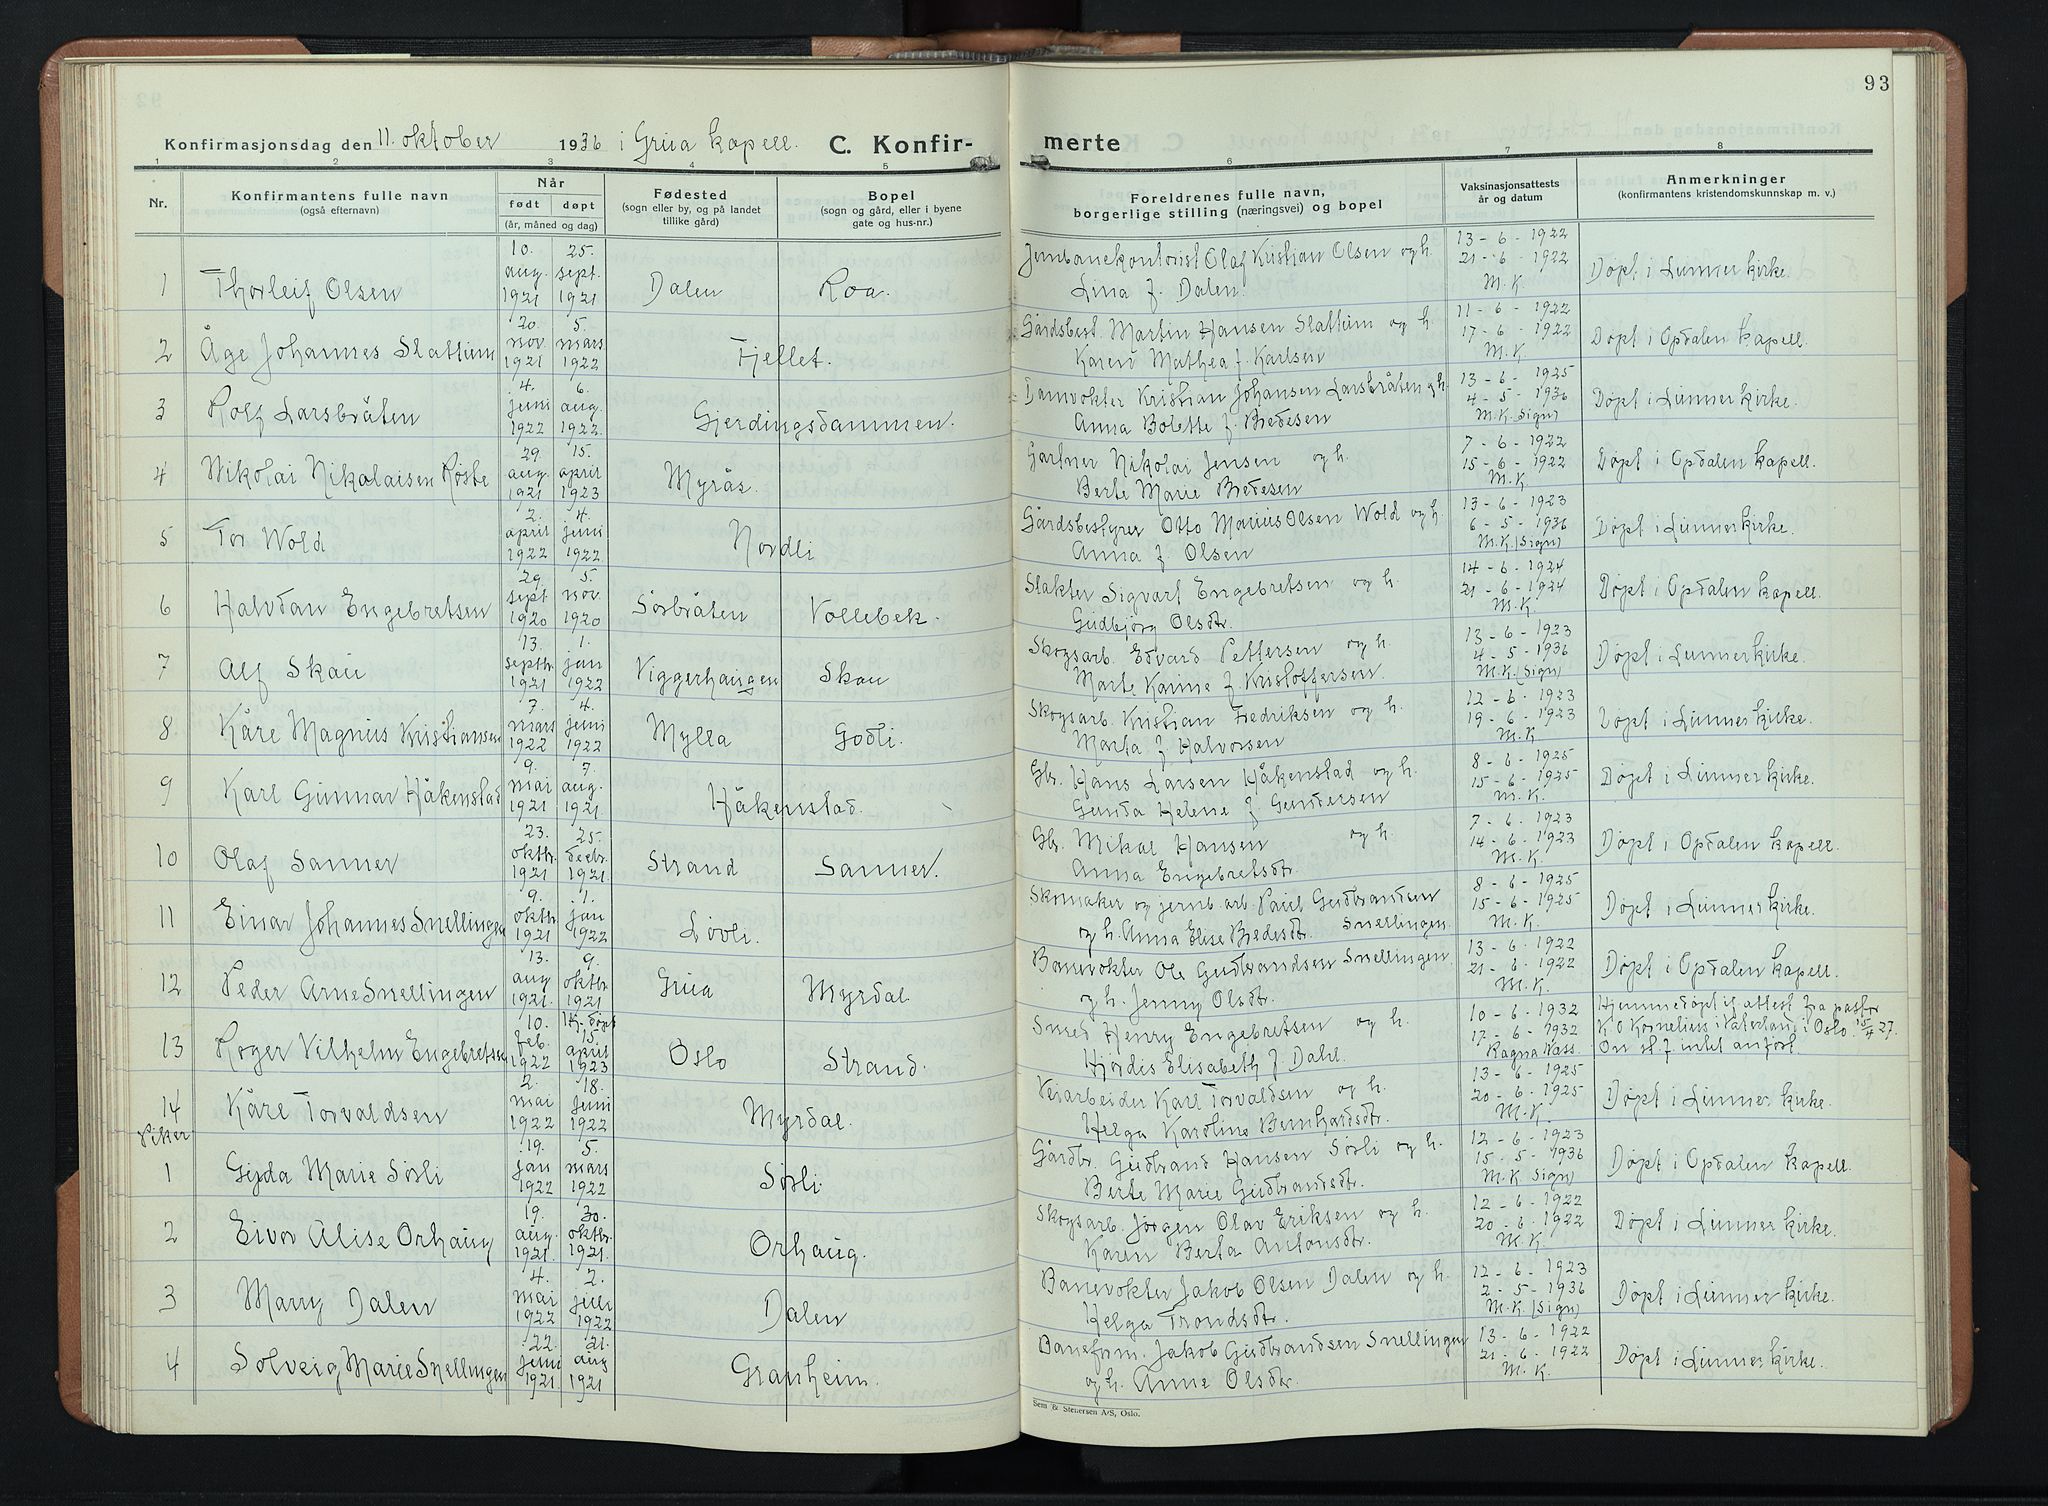 93
Konfirmasjonsdag den 11. oktober 1936 i Grua kapell. C. Konfirmerte
1 2 3 4 5 6 7 8
Nr.
Konfirmantens fulle navn
(også efternavn)
Når
født døpt
(år, måned og dag)
Fødested
(sogn eller by, og på landet
tillike gård)
Bopel
(sogn og gård, eller i byene
gate og hus-nr.)
Foreldrenes fulle navn,
borgerlige stilling (næringsvei) og bopel
Vaksinasjonsattests
år og datum
Anmerkninger
(konfirmantens kristendomskunnskap m. v.)
1 Thorleif Olsen 10. aug. 1921 25. sept. 1921 Dalen Roa.
Jernbanekontorist Olaf Kristian Olsen og h.
Lina f. Dalen.
13-6-1922
21-6-1922
M.K.
Døpt i Lunner kirke.
2 Åge Johannes Slattum 20. nov. 1921 5. mars 1922 Fjellet.
Gårdsbest. Martin Hansen Slattum og h.
Karen Mathea f. Karlsen
11-6-1922
17-6-1922
M.K.
Døpt i Opdalen kapell.
3 Rolf Larsbråten 4. juni 1922 6. aug. 1922. Gjerdingsdammen.
Damvokter Kristian Johansen Larsbråten og h.
Anna Bolette f. Bredesen
13-6-1925
4-5-1936
M.K. (Sign)
Døpt i Lunner kirke.
4 Nikolai Nikolaisen Røste 29. aug. 1921 15. april 1923 Myrås.
Gartner Nikolai Jensen og h.
Berte Marie Bredesen
7-6-1922
15-6-1922
M.K.
Døpt i Opdalen kapell.
5 Tor Wold 2. april 1922 4. juni 1922 Nordli
Gårdsbestyrer Otto Marius Olsen Wold og h.
Anna f. Olsen
13-6-1923
6-5-1936
M.K. (Sign)
Døpt i Lunner kirke.
6 Halvdan Engebretsen 29. sept 1920 5. nov. 1920 Sørbråten Vollebek.
Slakter Sigvart Engebretsen og h.
Gudbjørg Olsdtr.
14-6-1924
21-6-1924
M.K.
Døpt i Opdalen kapell.
7 Alf Skau 13. septbr. 1921 1. jan 1922 Viggerhaugen Skau
Skogsarb. Edvard Pettersen og h.
Marte Karine f. Kristoffersen.
13-6-1923
4-5-1936
M.K. (Sign)
Døpt i Lunner kirke.
8. Kåre Magnus Kristiansen 7. mars 1922 4. juni 1922 Mylla Godli.
Skogsarb. Kristian Fredriksen og h.
Marta f Halvorsen
12-6-1923
19-6-1923
M.K
Døpt i Lunner kirke.
9 Karl Gunnar Håkenstad 9. mai 1921 7. aug. 1921. Håkenstad.
Gbr. Hans Larsen Håkenstad og h.
Gunda Helene f. Gundersen
8-6-1925
15-6-1925
M.K.
Døpt i Lunner kirke.
10 Olaf Sanner 23. oktbr. 1921 25. decbr. 1921. Strand Sanner.
Gbr. Mikal Hansen og h.
Anna Engebretsdtr.
7-6-1923
14-6-1923
M.K.
Døpt i Opdalen kapell.
11 Einar Johannes Snellingen 9. oktbr. 1921 1. jan 1922 Løvli.
Skomaker og jernb.arb. Paul Gudbrandsen
og h. Anna Elise Bredesdtr. Snellingen.
8-6-1925
15-6-1925
M.K.
Døpt i Lunner kirke.
12 Peder Arne Snellingen 13. aug 1921. 9. oktbr. 1921 Grua Myrdal.
Banevokter Ole Gudbrandsen Snellingen.
og h. Jenny Olsdtr.
13-6-1922
21-6-1922
M.K.
Døpt i Opdalen kapell.
13 Roger Vilhelm Engebretsen 10. feb. 1922 Hj.døpt 15. april 1923 Oslo Strand.
Smed Henry Engebretsen og h.
Hjørdis Elisabeth f. Dahl.
10-6-1932
17-6-1932
Ragna Aass.
Hjemmedøpt if. attest fra pastor
K.O. Kornelius i Vaterland i Oslo 15/4 27.
Om st. f. intet anført.
14 Kåre Torvaldsen 2. mai 1922 18. juni 1922 Myrdal.
Veiarbeider Karl Torvaldsen og h.
Helga Karoline Bernhardsdtr.
13-6-1925
20-6-1925
M.K.
Døpt i Lunner kirke.
Piker
1 Gyda Marie Sørli 19. jan 1922 5. mars 1922 Sørli
Gårdbr. Gudbrand Hansen Sørli og h.
Berte Marie Gudbrandsdtr.
12-6-1923
15-5-1936
M.K Sign)
Døpt i Opdalen kapell.
2 Eivor Alise Orhaug 19. aug. 1921. 30. oktbr. 1921. Orhaug.
Skogsarb. Jørgen Olav Eriksen og h.
Karen Berta Antonsdtr.
12-6-1922
20-6-1922
M.K.
Døpt i Lunner kirke.
3 Marry Dalen 4. mai 1922 2. juli 1922 Dalen
Banevokter Jakob Olsen Dalen og h.
Helga Trondsdtr.
12-6-1923
2-5-1936
M.K. (Sign)
Døpt i Lunner kirke.
4 Solveig Marie Snellingen 22. juni 1921 21. aug 1921 Granheim.
Baneform. Jakob Gudbrandsen Snellingen
og h. Anne Olsdtr.
13-6-1922
21-6-1922
M.K.
Døpt i Lunner kirke.
Sem & Stenersen A/S, Oslo.